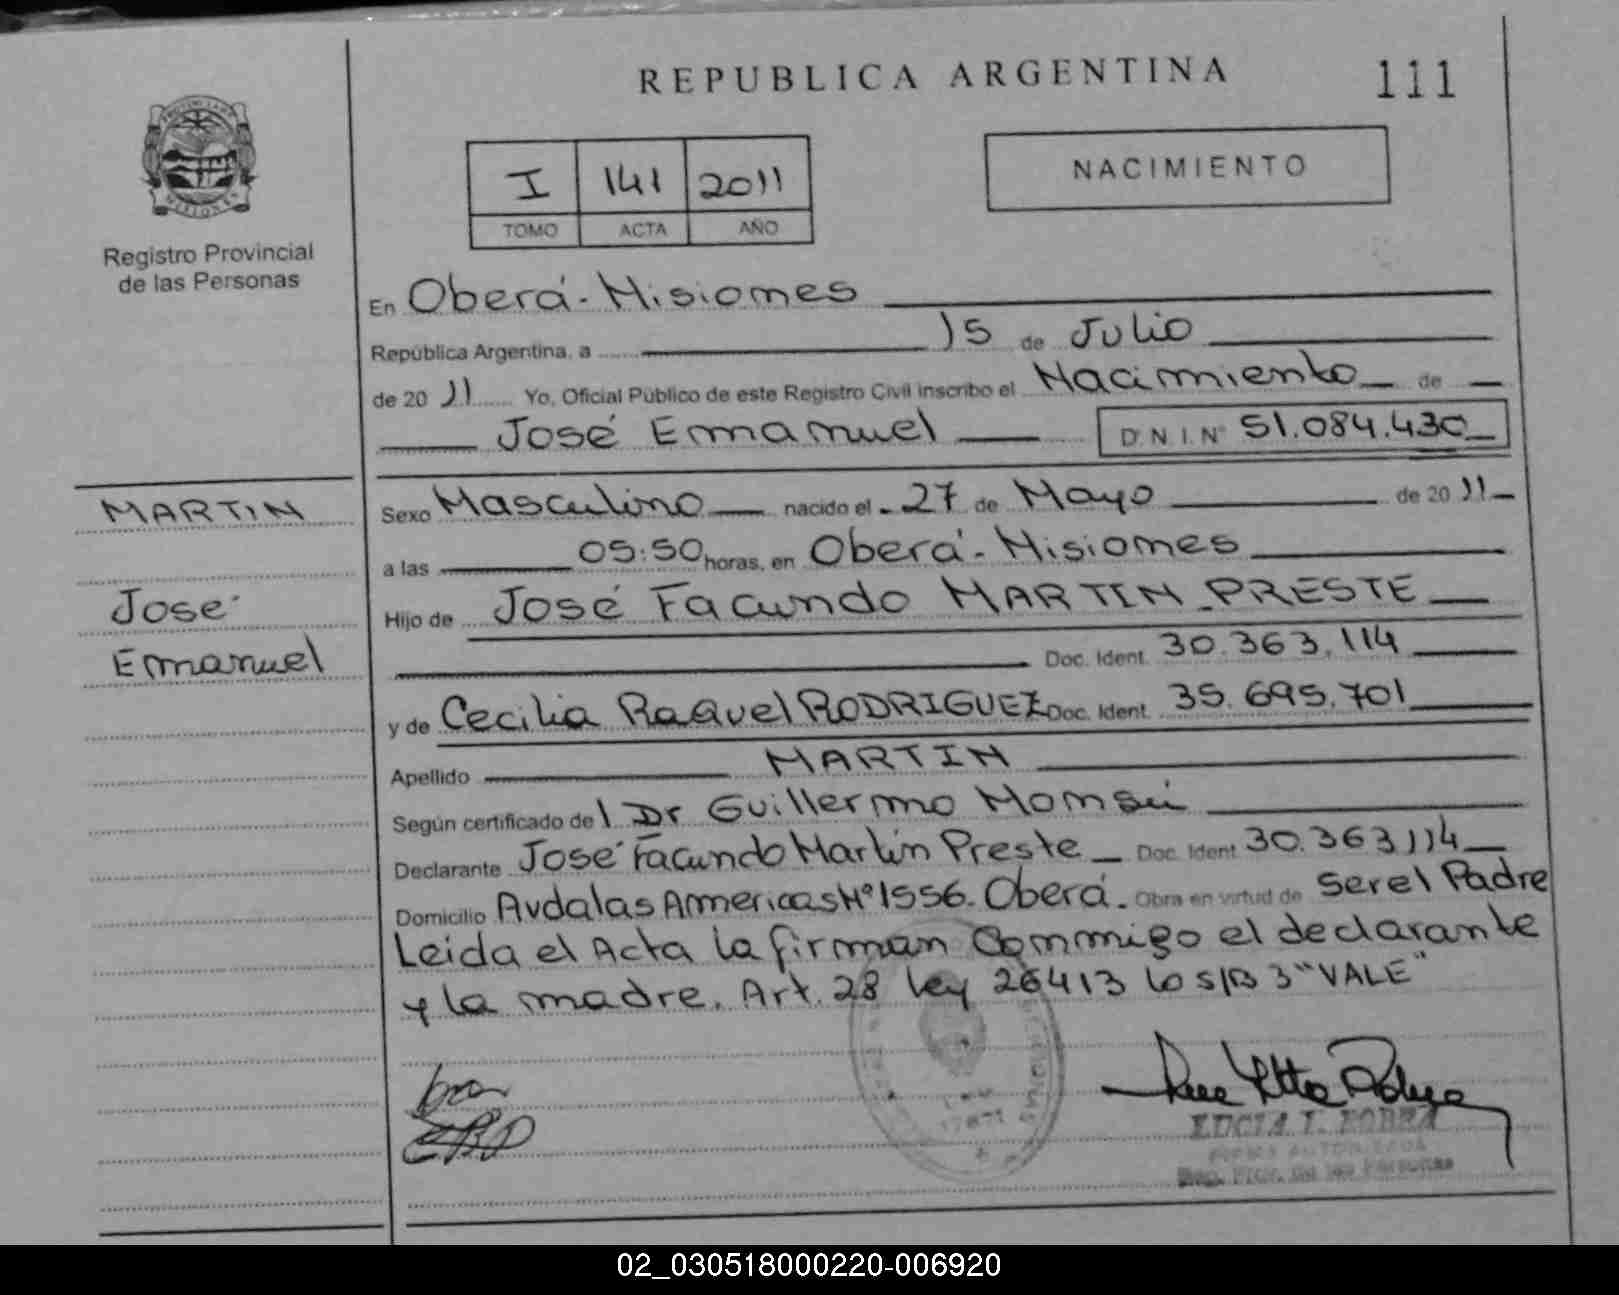 REPUBLICA ARGENTINA
111
I 141 2011
TOMO ACTA AÑO
NACIMIENTO
MISIONES
Registro Provincial
de las Personas
En Oberá - Misiones
República Argentina, a 15 de Julio
de 20 11 Yo, Oficial Público de este Registro Civil inscribo el Nacimiento de
José Emanuel D.N.I.Nº 51.084.430
MARTIN
José
Emanuel
Sexo Masculino nacido el 27 de Mayo de 20 11
a las 05:50 horas, en Oberá - Misiones
Hijo de José Facundo MARTIN PRESTE
Doc. Ident. 30.363.114
y de Cecilia Raquel RODRIGUEZ Doc. Ident. 35.695.701
Apellido MARTIN
Según certificado de l Dr Guillermo
Declarante José Facundo Martin Preste Doc. Ident. 30.363114
Domicilio Avdalas Americas Nº 1556. Oberá. Obra en virtud de Ser el Padre
Leida el Acta la firman Conmigo el declarante
y la madre. Art. 28 ley 26413 lo s/B 3 "VALE"
LUCIA I.
FIRMA AUTORIZADA
Reg. Prov. de las Personas
02_030518000220-006920